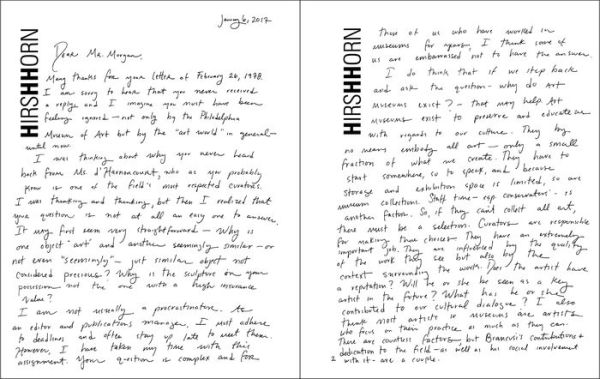 HIRSHHORN
January 6, 2017
Dear Mr. Morgan,
Many thanks for your letter of February 26, 1978.
I am sorry to hear that you never received
a reply, and I imagine you must have been
feeling ignored — not only by the Philadelphia
Museum of Art but by the "art world" in general —
until now.
I was thinking about why you never heard
back from Ms. d'Harnoncourt, who as you probably
know is one of the field's most respected curators.
I was thinking and thinking, but then I realized that
your question is not at all an easy one to answer.
It may first seem very straightforward — Why is
one object 'art' and another seemingly similar — or
not even "seemingly" — just similar object not
considered precious? Why is the sculpture in your
possession not the one with a high insurance
value?
I am not usually a procrastinator. As
an editor and publications manager, I must adhere
to deadlines and often stay up late to meet them.
However, I have taken my time with this
assignment. Your question is complex and for
HIRSHHORN
those of us who have worked in
museums for years, I think some of
us are embarrassed not to have the answer.
I do think that if we step back
and ask the question — why do Art
Museums exist? — that may help. Art
Museums exist to preserve and educate us
with regards to our culture. They by
no means embody all art — only a small
fraction of what we create. They have to
start somewhere, so to speak, and because
storage and exhibition space is limited, so are
museum collections. Staff time — esp conservators' — is
another factor. So, if they can't collect all art,
there must be a selection. Curators are responsible
for making these choices. They have an extremely
important job. They are influenced by the quality
of the work they see but also by the
context surrounding the work. Does the artist have
a reputation? Will he or she be seen as a key
artist in the future? What has he or she
contributed to our cultural dialogue? I also
think most artists in museums are artists
who focus on their practice as much as they can.
There are countless factors but Brancusi's contributions &
dedication to the field — as well as his social involvement
2 with it — are a couple.